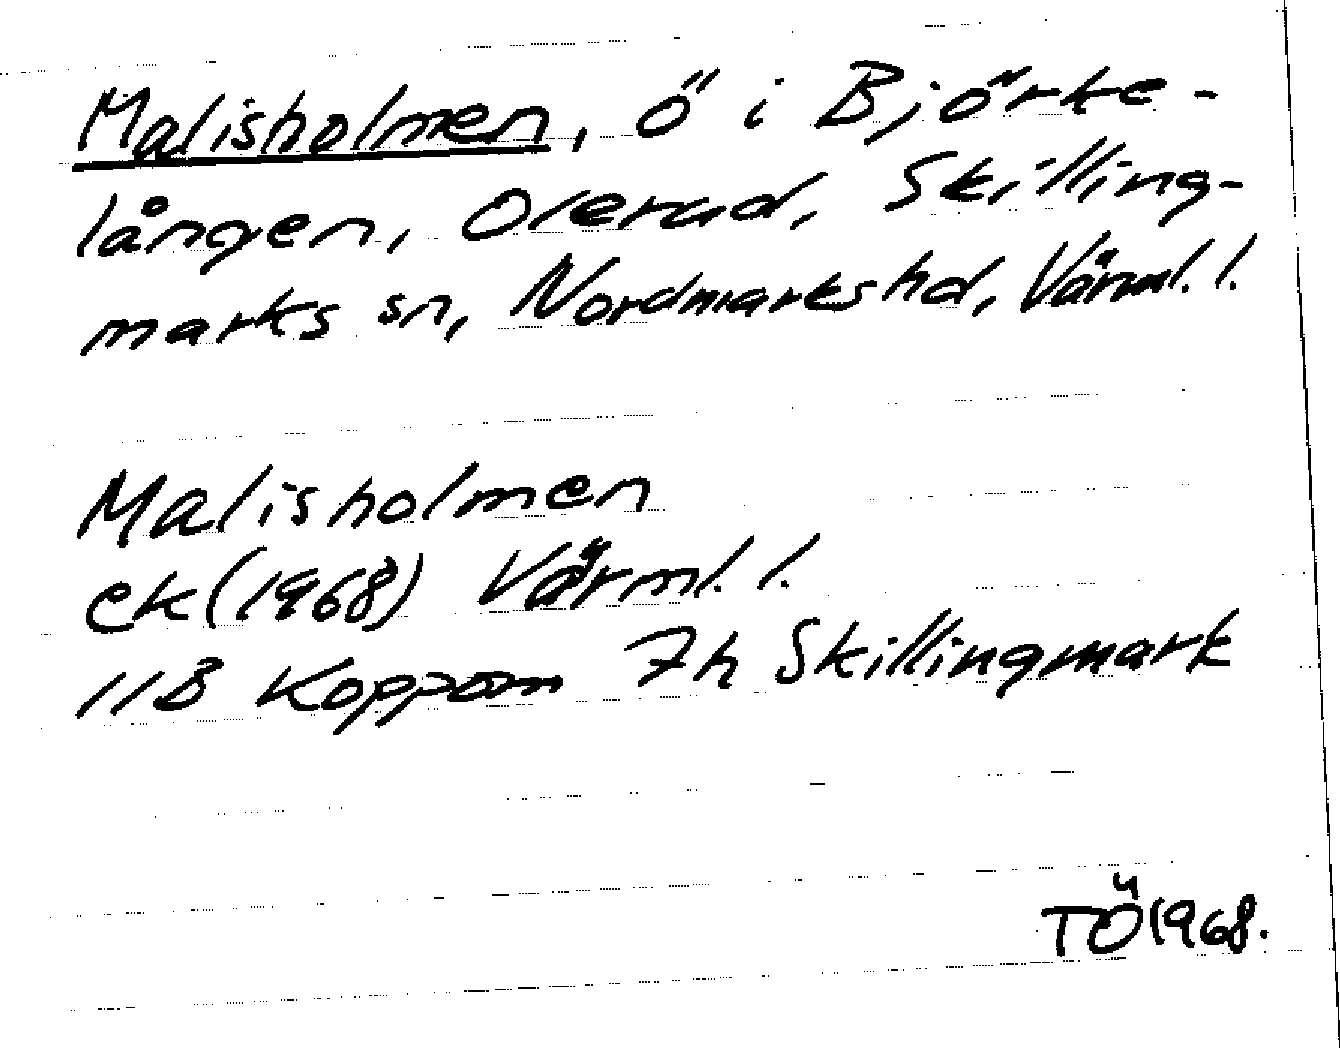 Malisholmen, ö i Björke-
lången, Olerud, Skilling-
marks sn, Nordmarks hd, Värml. l.
Malisholmen
ek (1968) Värml. l.
11B Koppom 7h Skillingmark
TÖ 1968.